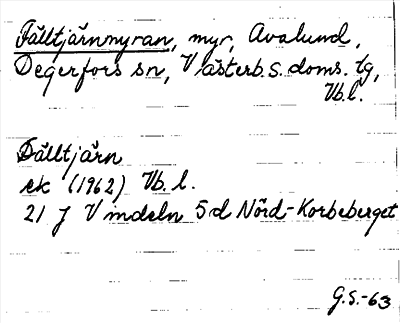 Fälltjärnmyran, myr, Avalund,
Degerfors sn, Västerb. s. doms. tg,
Vb. l.
Fälltjärn
ek (1962) Vb. l.
21 J Vindeln 5d Nörd-Korbeberget
G.S.-63